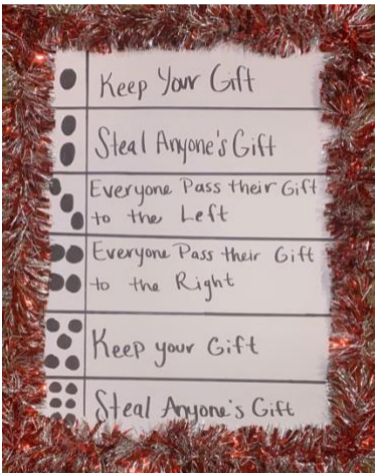 Keep Your Gift
Steal Anyone's Gift
Everyone Pass their Gift
to the Left
Everyone Pass their Gift
to the Right
Keep your Gift
Steal Anyone's Gift